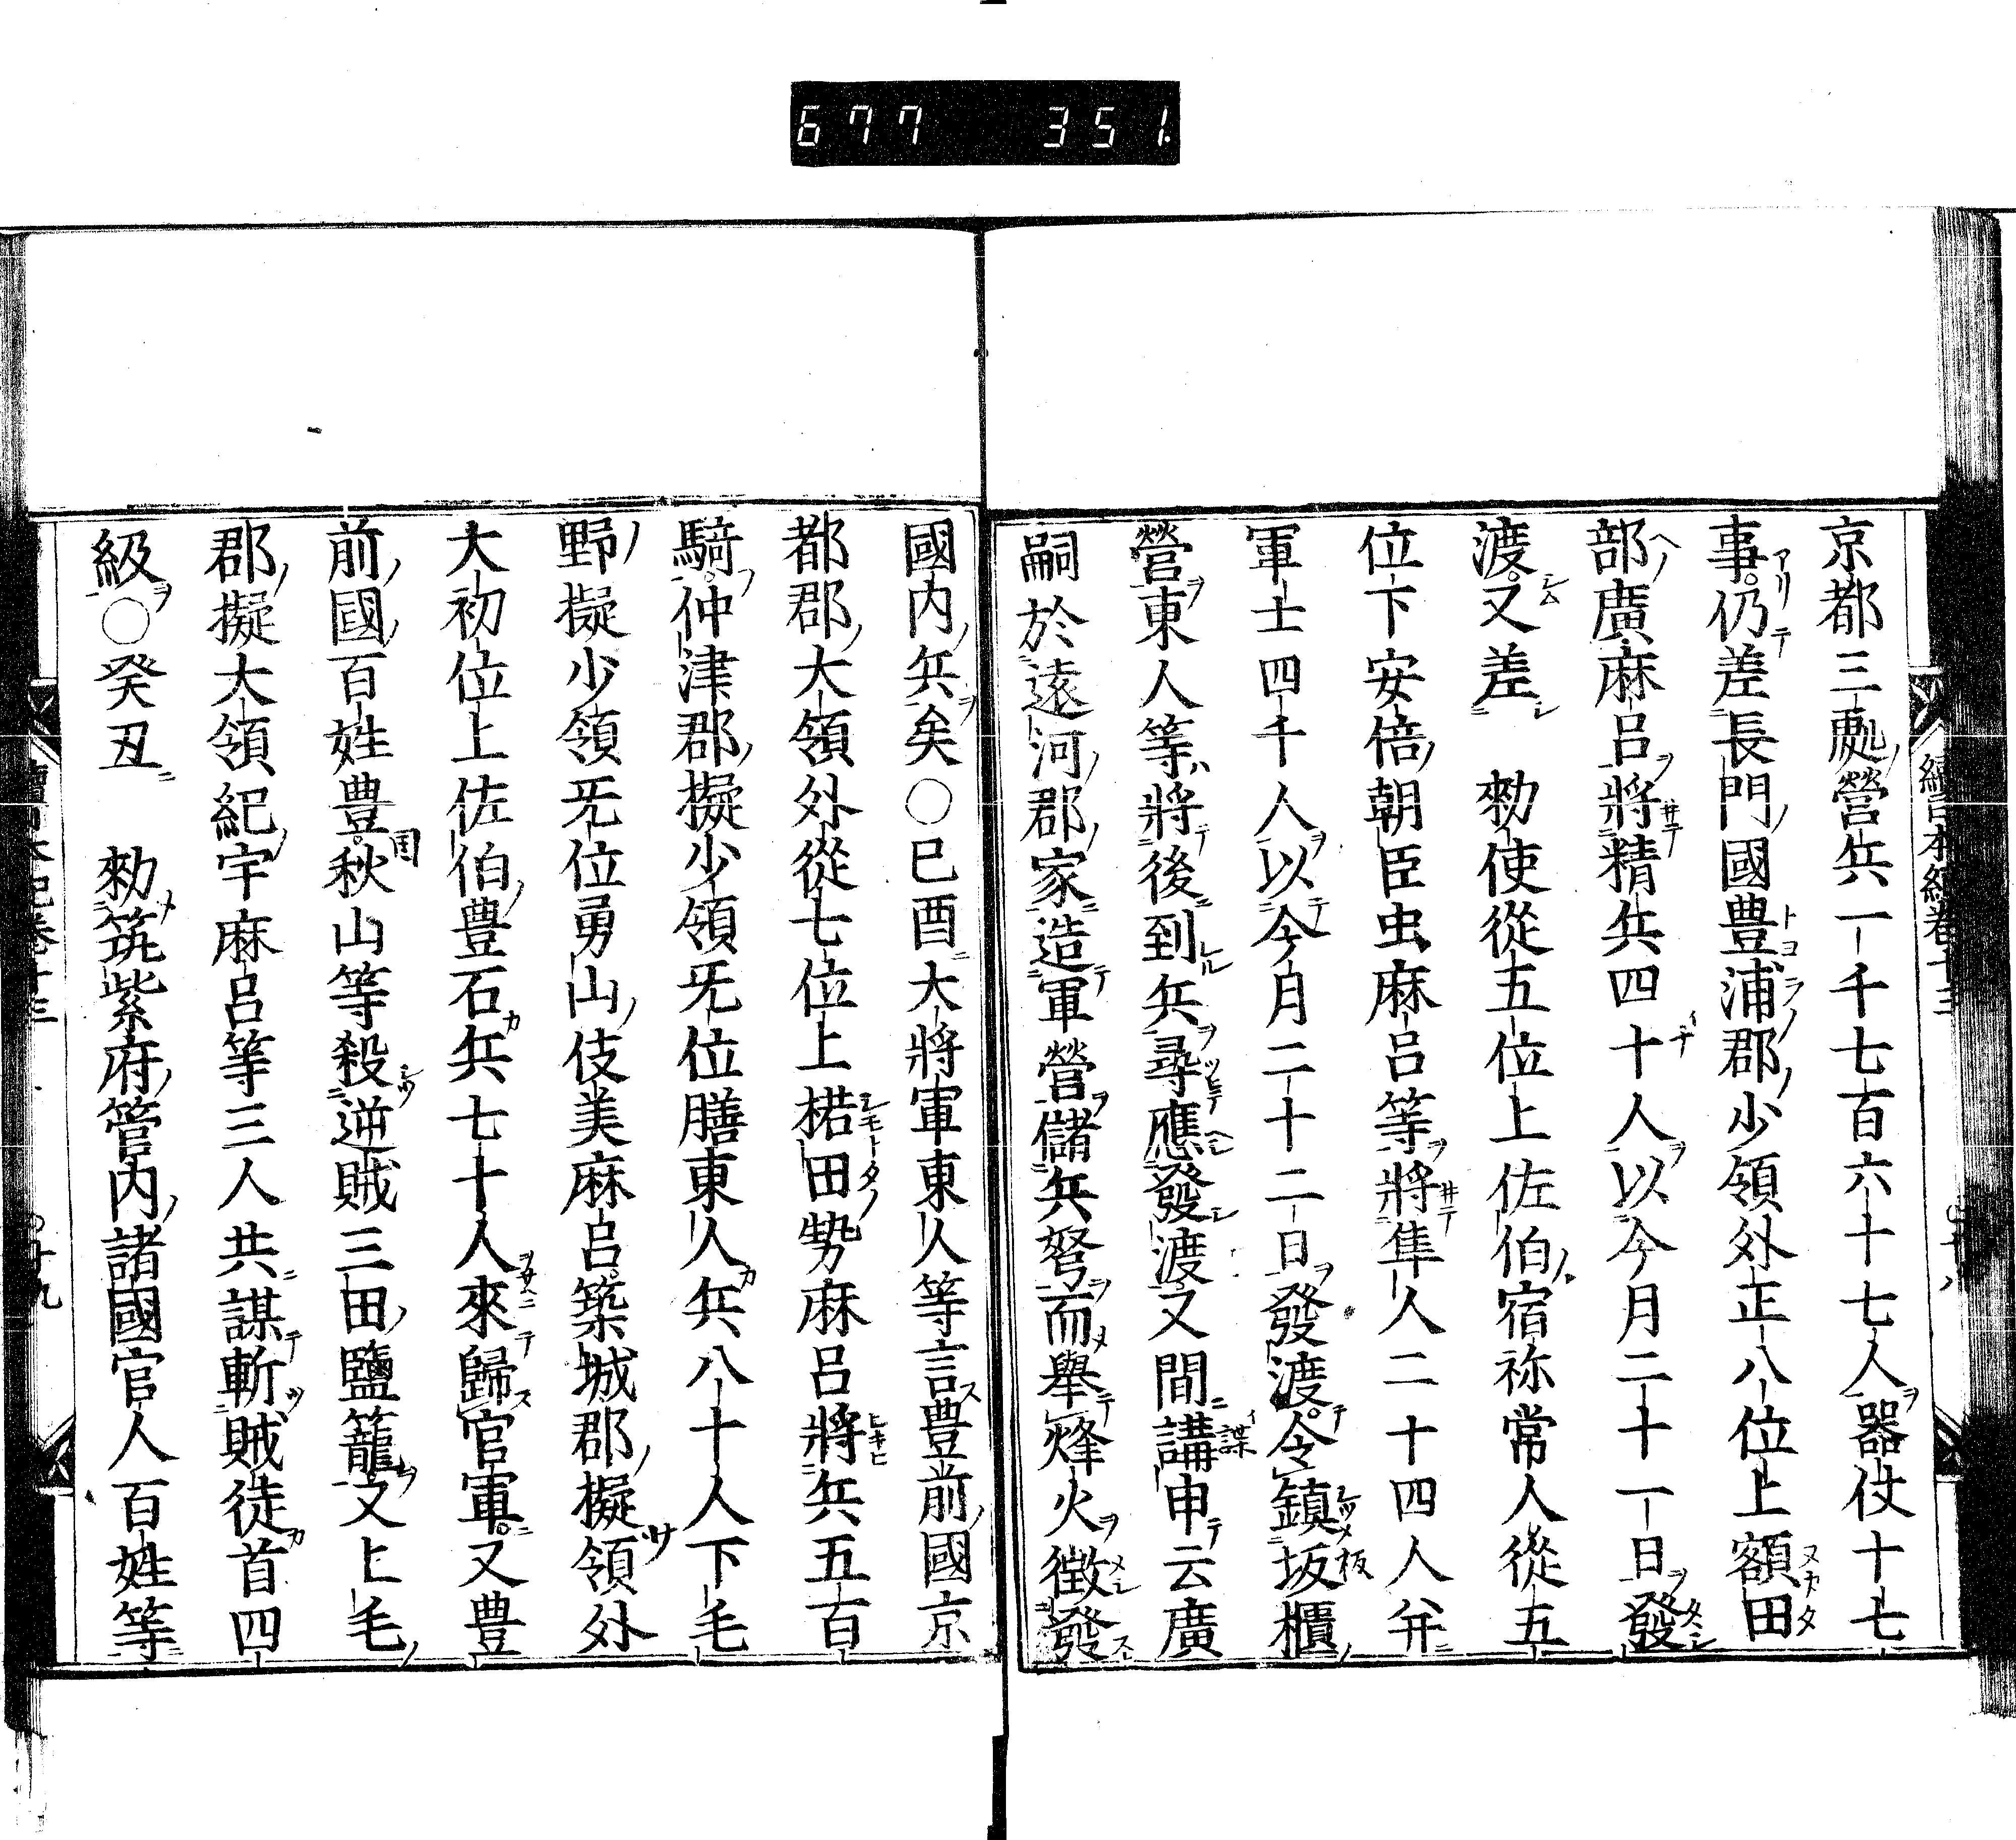 677 351
京都三處營兵一千七百六十七人器仗十七
事。仍差長門國豊浦郡少領外正八位上額田
部廣麻呂將精兵四十人以今月二十一日發
渡。又差 勑使從五位上佐伯宿祢常人從五
位下安倍朝臣虫麻呂等將隼人二十四人并
軍士四千人以今月二十二日發渡。令鎮坂櫃
營東人等將後到兵尋應發渡又間講申云廣
嗣於遠河郡家造軍營儲兵弩而舉烽火徵發
國内兵矣○巳酉大將軍東人等言豊前國京
都郡大領外從七位上楉田勢麻呂將兵五百
騎。仲津郡擬少領旡位膳東人兵八十人下毛
野擬少領旡位勇山伎美麻呂。築城郡擬領外
大初位上佐伯豊石兵七十人來歸官軍。又豊
前國百姓豊。秋山等殺逆賊三田鹽籠又上毛
郡擬大領紀宇麻呂等三人共謀斬賊徒首四
級○癸丑 勑筑紫府管内諸國官人百姓等